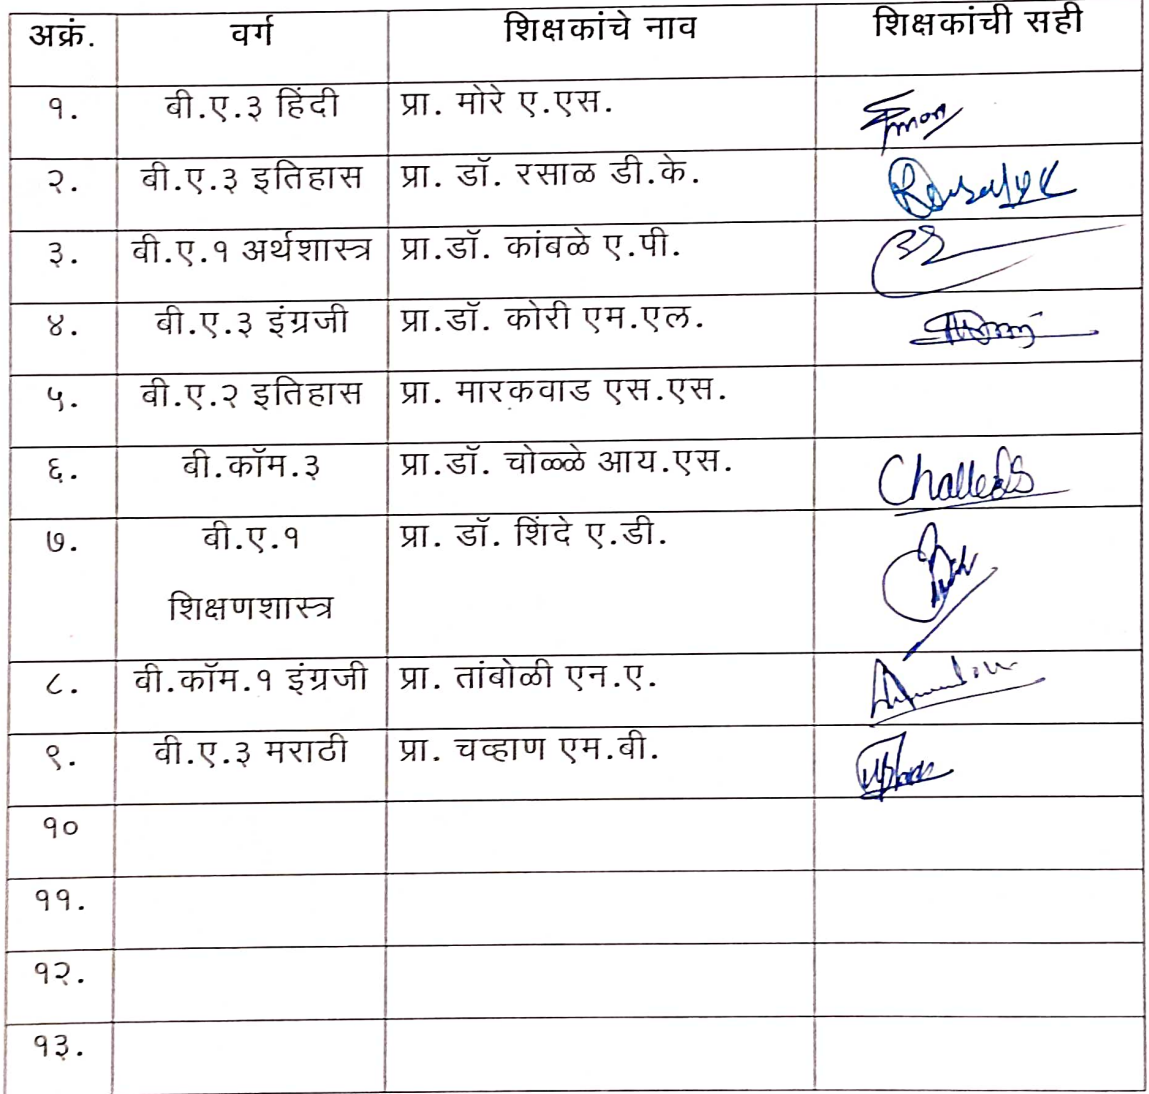 अक्रं. वर्ग शिक्षकांचे नाव शिक्षकांची सही
१. बी.ए.३ हिंदी प्रा. मोरे ए.एस.
२. बी.ए.३ इतिहास प्रा. डॉ. रसाळ डी.के.
३. बी.ए.१ अर्थशास्त्र प्रा.डॉ. कांबळे ए.पी.
४. बी.ए.३ इंग्रजी प्रा.डॉ. कोरी एम.एल.
५. बी.ए.२ इतिहास प्रा. मारकवाड एस.एस.
६. बी.कॉम.३ प्रा.डॉ. चोळ्ळे आय.एस.
७. बी.ए.१ प्रा. डॉ. शिंदे ए.डी.
शिक्षणशास्त्र
८. बी.कॉम.१ इंग्रजी प्रा. तांबोळी एन.ए.
९. बी.ए.३ मराठी प्रा. चव्हाण एम.बी.
१०
११.
१२.
१३.